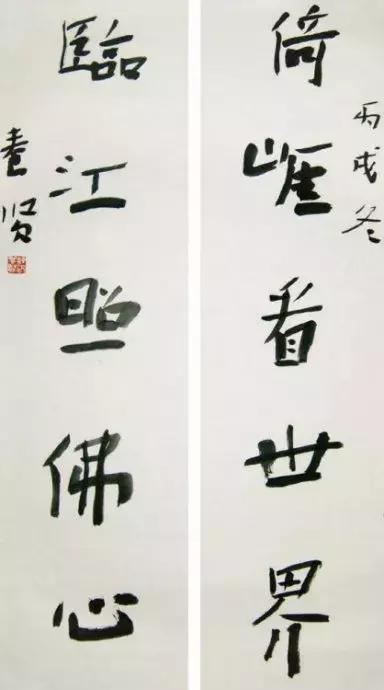 丙戌冬
倚崖看世界
臨江照佛心
贤